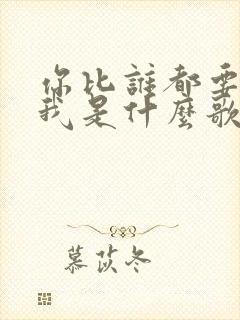 你比誰都要
我是什麼歌
慕苡冬